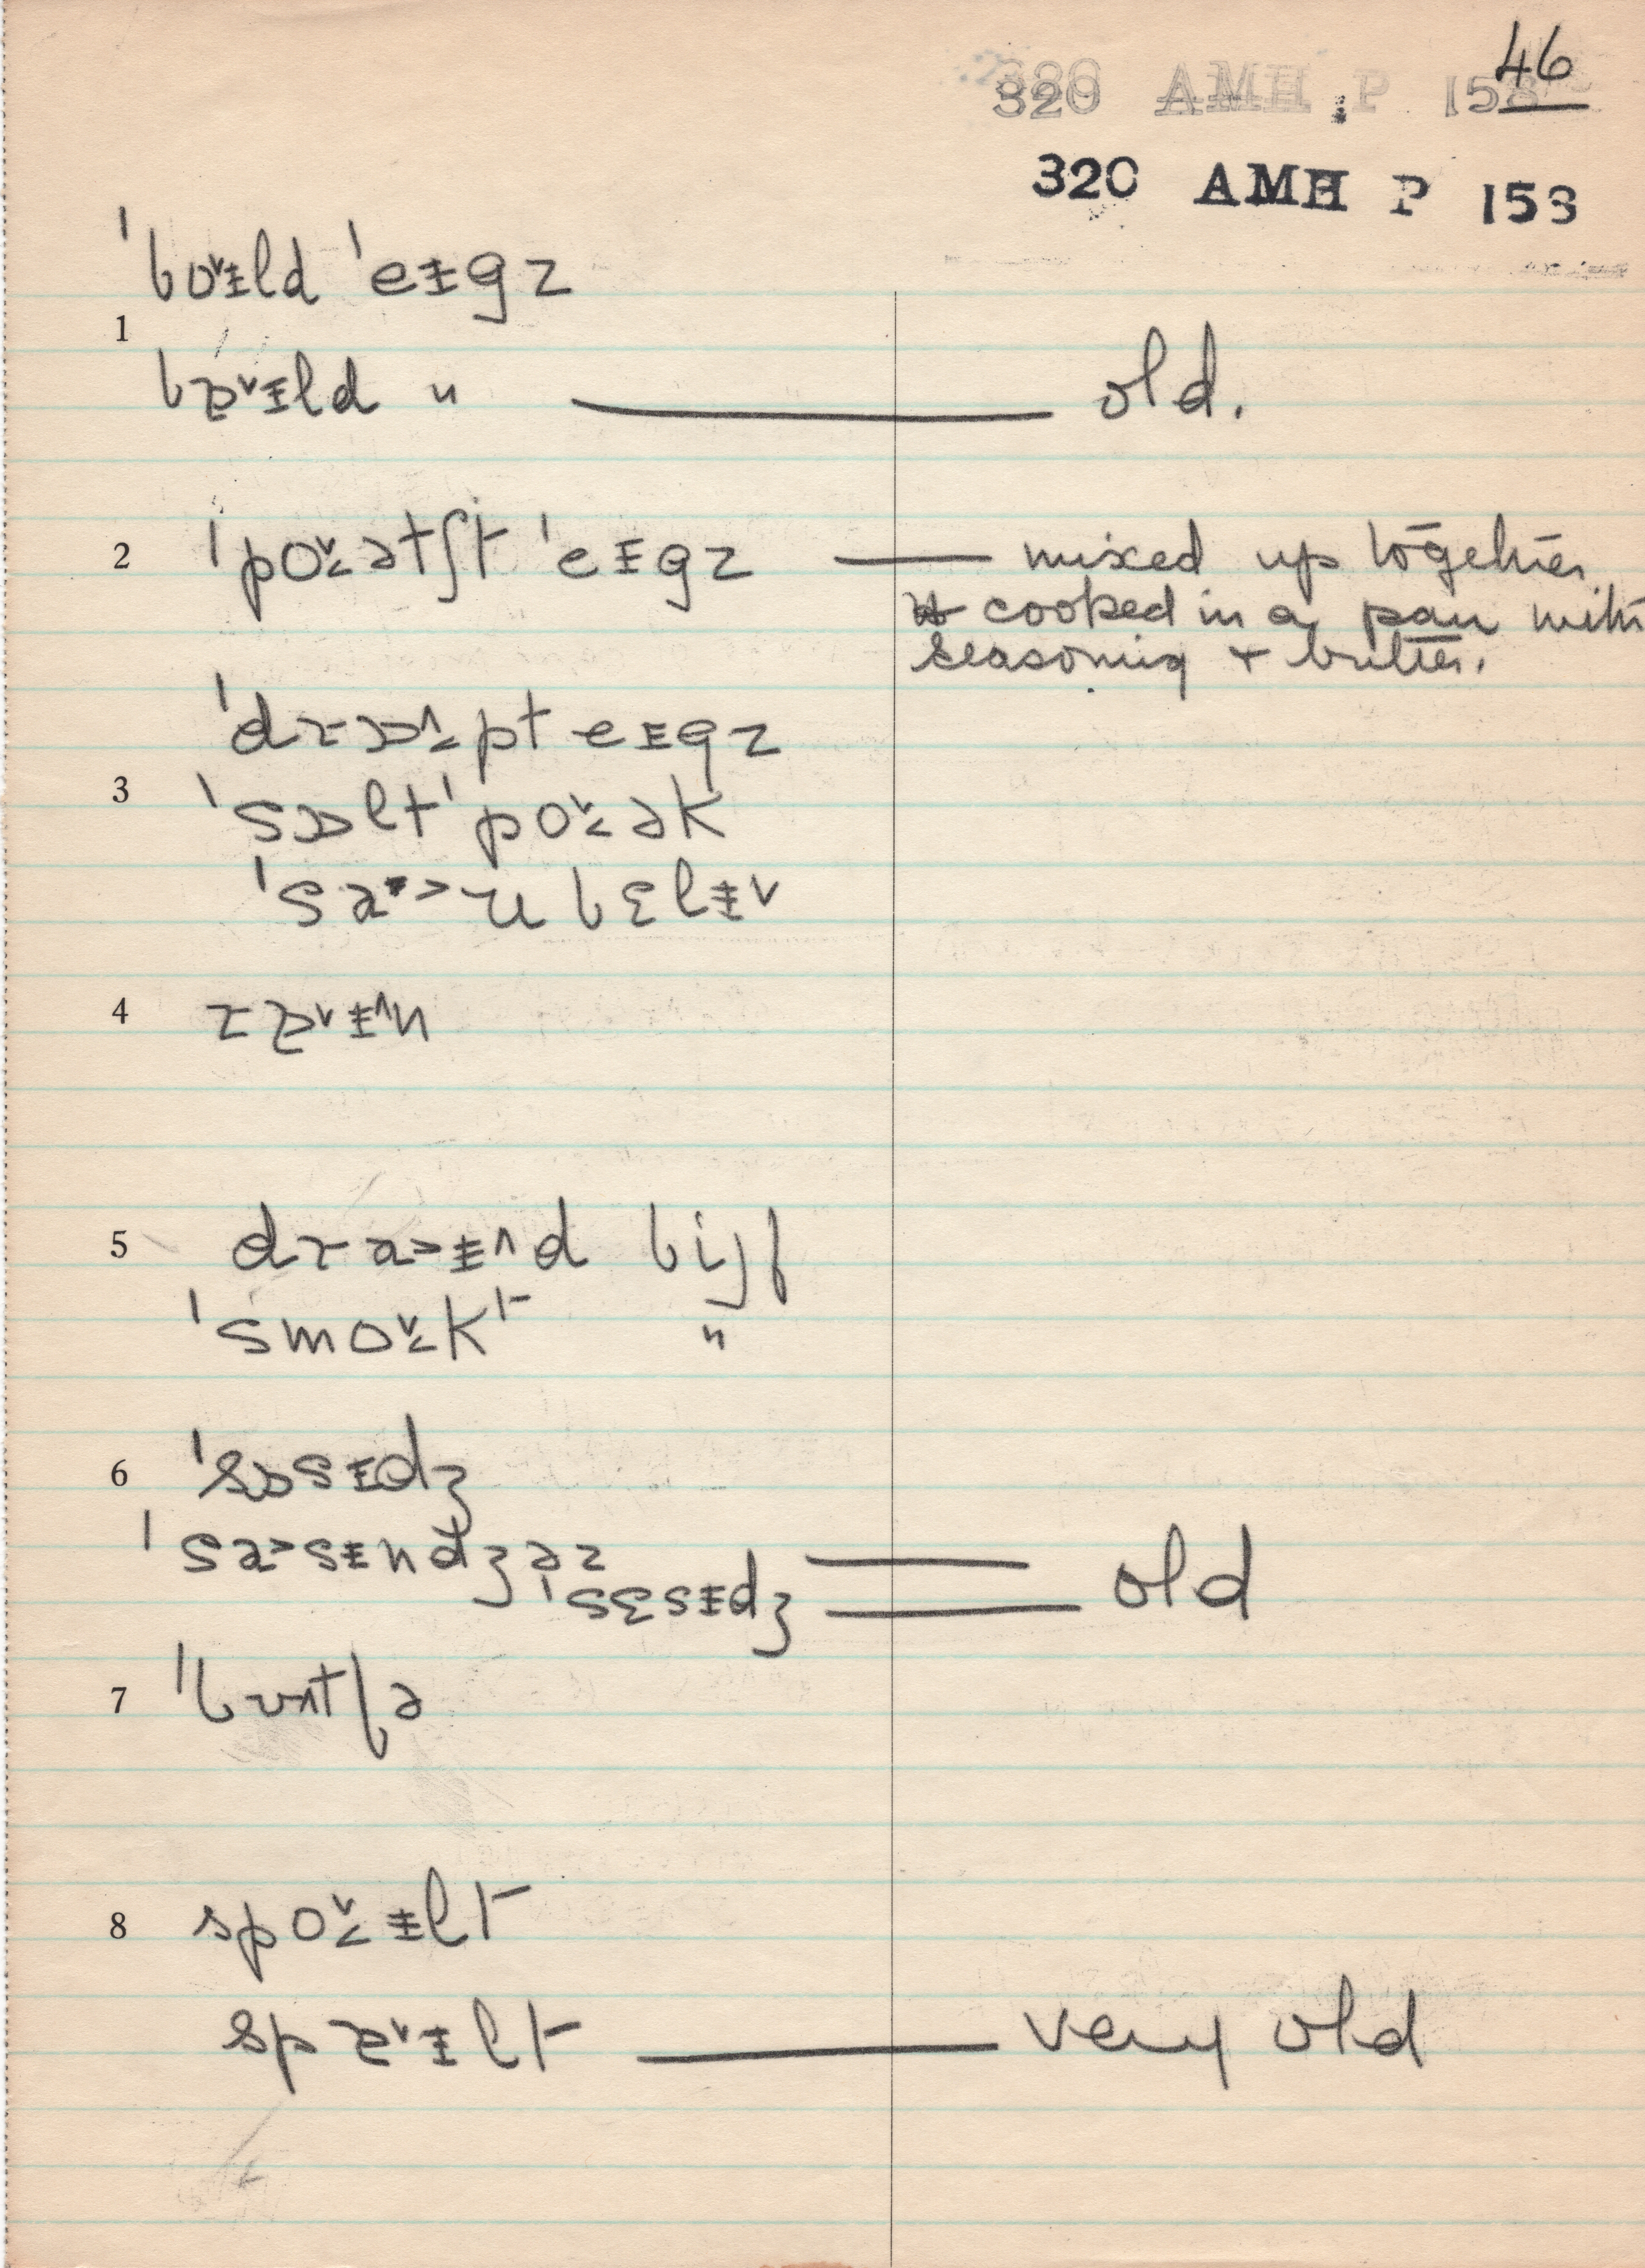 46
320 AMH P 153
320 AMH P 153
ˈbo˅ɨld ˈeɨgz
1
bɒ˅ɨld " — old.
2 ˈpo˅ətʃt ˈeɨgz — mixed up together
cooked in a pan with
seasoning + butter.
ˈdrɒ˄pt eɨgz
3 ˈsɒlt ˈpo˅ək
ˈsa>ʊbɛlɨ˅
4 rɒ˅ɨ˄n
5 dra>ɨ˄d bijf
ˈsmo˅kt "
6 ˈsɒsɨdʒ
ˈsa>sɨndʒəz — old
ˈsɛsɨdʒ —
7 ˈbʊtʃə
8 spo˅ɨlt
spɒ˅ɨlt — very old